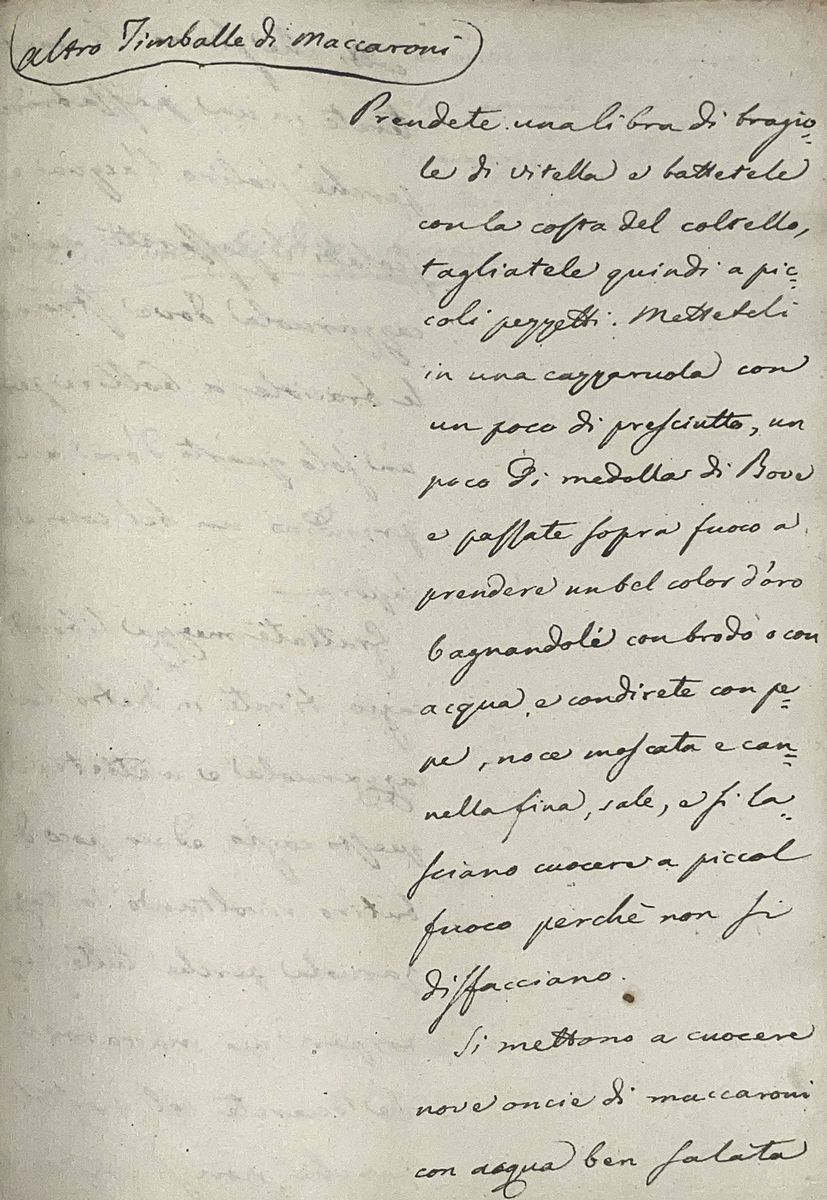 altro Timballe di Maccaroni
Prendete una libra di bragio=
le di vitella e battetele
con la costa del coltello,
tagliatele quindi a pic=
coli pezzetti. Metteteli
in una cazzaruola con
un poco di presciutto, un
poco di medolla di Bove
e passate sopra fuoco a
prendere un bel color d'óro
bagnandolé con brodo o con
acqua, e condirete con pe=
pe, noce moscata e can=
nella fina, sale, e si la=
sciano cuocere a piccol
fuoco perchè non si
disfacciano.
Si mettono a cuocere
nove oncie di maccaroni
con acqua ben salata